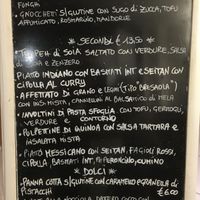 FUNGHI
- GNOCCHETTI S/GLUTINE CON SUGO DI ZUCCA, TOFU
AFFUMICATO, ROSMARINO, MANDORLE
* SECONDI € 13,50 *
- TEMPEH DI SOIA SALTATO CON VERDURE, SALSA
DI SOIA E ZENZERO
PIATTO INDIANO CON BASMATI INT. E SEITAN CON
CIPOLLA AL CURRY
- AFFETTATO DI GRANO E LEGUMI (TIPO "BRESAOLA")
CON INS. MISTA, CANNELLINI AL BALSAMICO DI MELA
- INVOLTINI DI PASTA SFOGLIA CON TOFU, GERMOGLI
VERDURE E CONTORNO
- POLPETTINE DI QUINOA CON SALSA TARTARA E
INSALATA MISTA
- PIATTO MESSICANO CON SEITAN, FAGIOLI ROSSI,
CIPOLLA, BASMATI INT, PEPERONCINO, CUMINO
* DOLCI *
- PANNA COTTA S/GLUTINE CON CARAMELLO E GRANELLA DI
PISTACCHI € 6.00